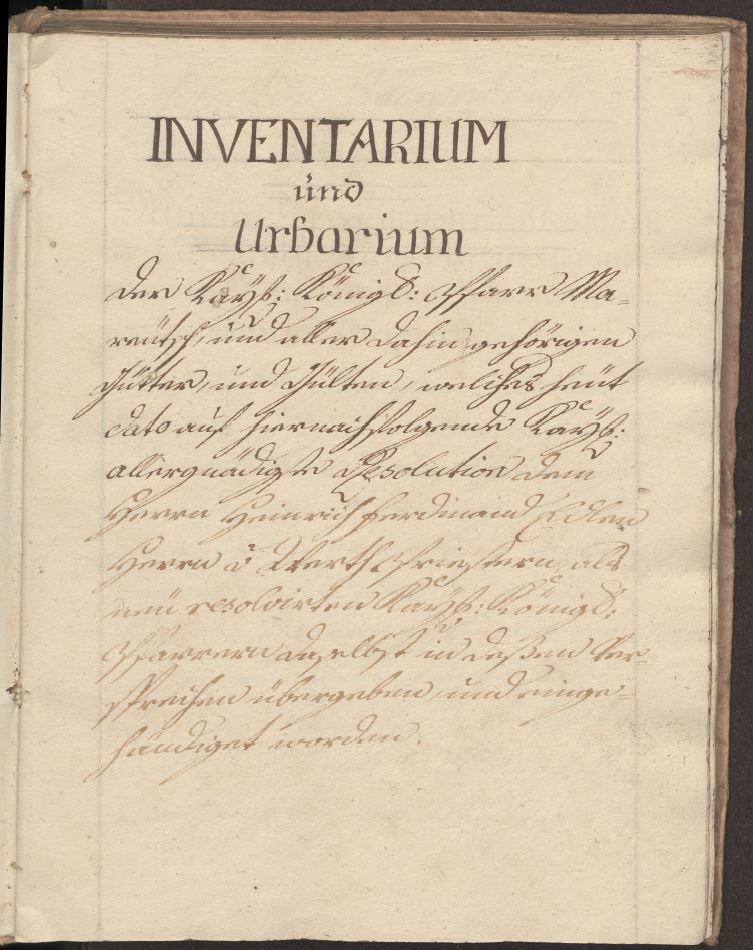 INVENTARIUM
und
Urbarium
der Kaÿß: Königl: Pfarr Ma-
reütsch, und aller dahin gehörigen
Gütter, und Gülten, welches heüt
dato auf hiernachfolgende Kaÿß:
allergnädigste Resolution dem
Herrn Heinrich Ferdinand Edlen
Herrn v Werth Priestern, als
neü resolvirten Kaÿß: Königl:
Pfarrern daselbst in deßen Ver-
sprechen übergeben, und einge-
händiget worden.